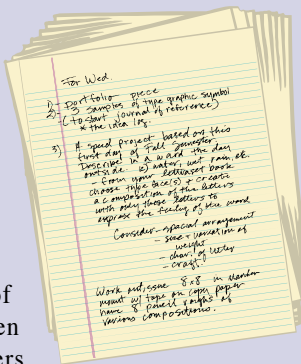 For Wed.
1- Portfolio piece
2- 3 samples of type graphic symbol
(to start journal of reference)
* the idea log.
3) A speed project based on this
first day of Fall Semester
Describe in a word the day
outside. water, wet rain, etc.
- from your letraset book
choose type face(s) + create
a composition of the letters
with only those letters to
express the feeling of the word
Consider - spacial arrangement
- size + variation of
weight
- char. of letter
- craft
Work out, issue 8x8 in
mount w/ tape on copy paper
have 8 pencil roughs of
various compositions.
of
en
ers